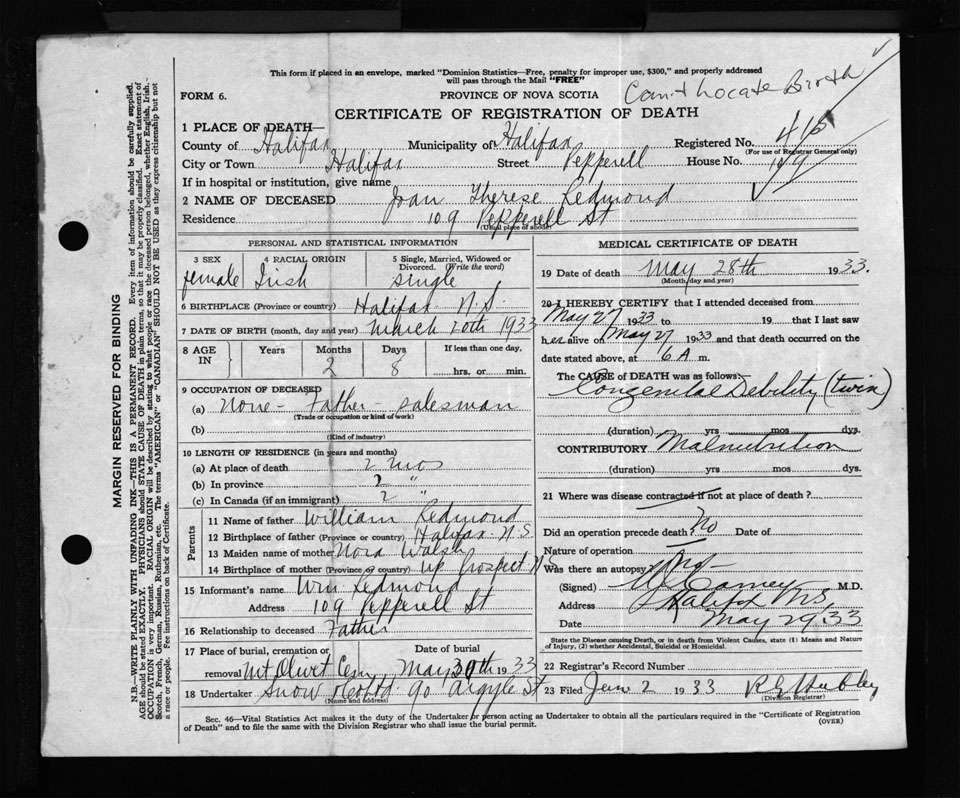 This form if placed in an envelope, marked "Dominion Statistics—Free, penalty for improper use, $300," and properly addressed
will pass through the Mail "FREE"
FORM 6.
PROVINCE OF NOVA SCOTIA
Can't Locate Birth
CERTIFICATE OF REGISTRATION OF DEATH
1 PLACE OF DEATH—
County of Halifax Municipality of Halifax Registered No.
(For use of Registrar General only)
City or Town Halifax Street Pepperell House No. 109
If in hospital or institution, give name
2 NAME OF DECEASED Joan Therese Redmond
Residence 109 Pepperell St
(Usual place of abode)
PERSONAL AND STATISTICAL INFORMATION
3 SEX 4 RACIAL ORIGIN 5 Single, Married, Widowed or
Divorced. (Write the word)
female Irish single
6 BIRTHPLACE (Province or country) Halifax N.S.
7 DATE OF BIRTH (month, day and year) March 20th 1933
8 AGE IN Years Months Days If less than one day,
2 8 hrs. or min.
9 OCCUPATION OF DECEASED
(a) None - Father salesman
(Trade or occupation or kind of work)
(b)
(Kind of industry)
10 LENGTH OF RESIDENCE (in years and months)
(a) At place of death 2 mos
(b) In province 2 "
(c) In Canada (if an immigrant) 2 "
Parents
11 Name of father William Redmond
12 Birthplace of father (Province or country) Halifax N.S.
13 Maiden name of mother Nora Walsh
14 Birthplace of mother (Province or country) Up. Prospect N.S.
15 Informant's name Wm Redmond
Address 109 Pepperell St
16 Relationship to deceased Father
17 Place of burial, cremation or Date of burial
removal Mt Olivet Cem May 30th 1933
18 Undertaker Snow & Co Ltd. 90 Argyle St
(Name and address)
MEDICAL CERTIFICATE OF DEATH
19 Date of death May 28th 1933.
(Month, day and year)
20 I HEREBY CERTIFY that I attended deceased from
May 27 1933 to 19 that I last saw
her alive on May 27 1933 and that death occurred on the
date stated above, at 6 A m.
The CAUSE of DEATH was as follows:—
Congenital Debility (twin)
(duration) yrs mos dys.
CONTRIBUTORY Malnutrition
(duration) yrs mos dys.
21 Where was disease contracted if not at place of death?
Did an operation precede death? No Date of
Nature of operation
Was there an autopsy? No -
(Signed) M.D.
Address Halifax N.S.
Date May 29 1933
State the Disease causing Death, or in death from Violent Causes, state (1) Means and Nature
of Injury, (2) whether Accidental, Suicidal or Homicidal.
22 Registrar's Record Number
23 Filed Jun 2 1933
(Division Registrar)
Sec. 46—Vital Statistics Act makes it the duty of the Undertaker or person acting as Undertaker to obtain all the particulars required in the "Certificate of Registration
of Death" and to file the same with the Division Registrar who shall issue the burial permit.
(OVER)
MARGIN RESERVED FOR BINDING
N.B.—WRITE PLAINLY WITH UNFADING INK—THIS IS A PERMANENT RECORD. Every item of information should be carefully supplied.
AGE should be stated EXACTLY. PHYSICIANS should STATE CAUSE OF DEATH in plain terms, so that it may be properly classified. Exact statement of
OCCUPATION is very important. RACIAL ORIGIN will be described by stating to what people or race the deceased person belonged, whether English, Irish,
Scotch, French, German, Russian, Ruthenian, etc. The terms "AMERICAN" or "CANADIAN" SHOULD NOT BE USED as they express citizenship but not
a race or people. See instructions on back of Certificate.